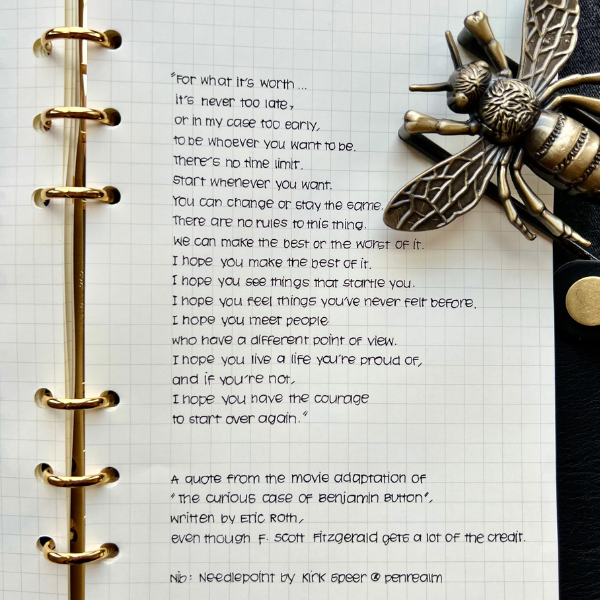 "For what it's worth...
it's never too late,
or in my case too early,
to be whoever you want to be.
There's no time limit.
Start whenever you want.
You can change or stay the same.
There are no rules to this thing.
We can make the best or the worst of it.
I hope you make the best of it.
I hope you see things that startle you.
I hope you feel things you've never felt before.
I hope you meet people
who have a different point of view.
I hope you live a life you're proud of,
and if you're not,
I hope you have the courage
to start over again."
A quote from the movie adaptation of
"The Curious Case of Benjamin Button",
written by Eric Roth,
even though F. Scott Fitzgerald gets a lot of the credit.
Nib: Needlepoint by Kirk Speer @ penrealm